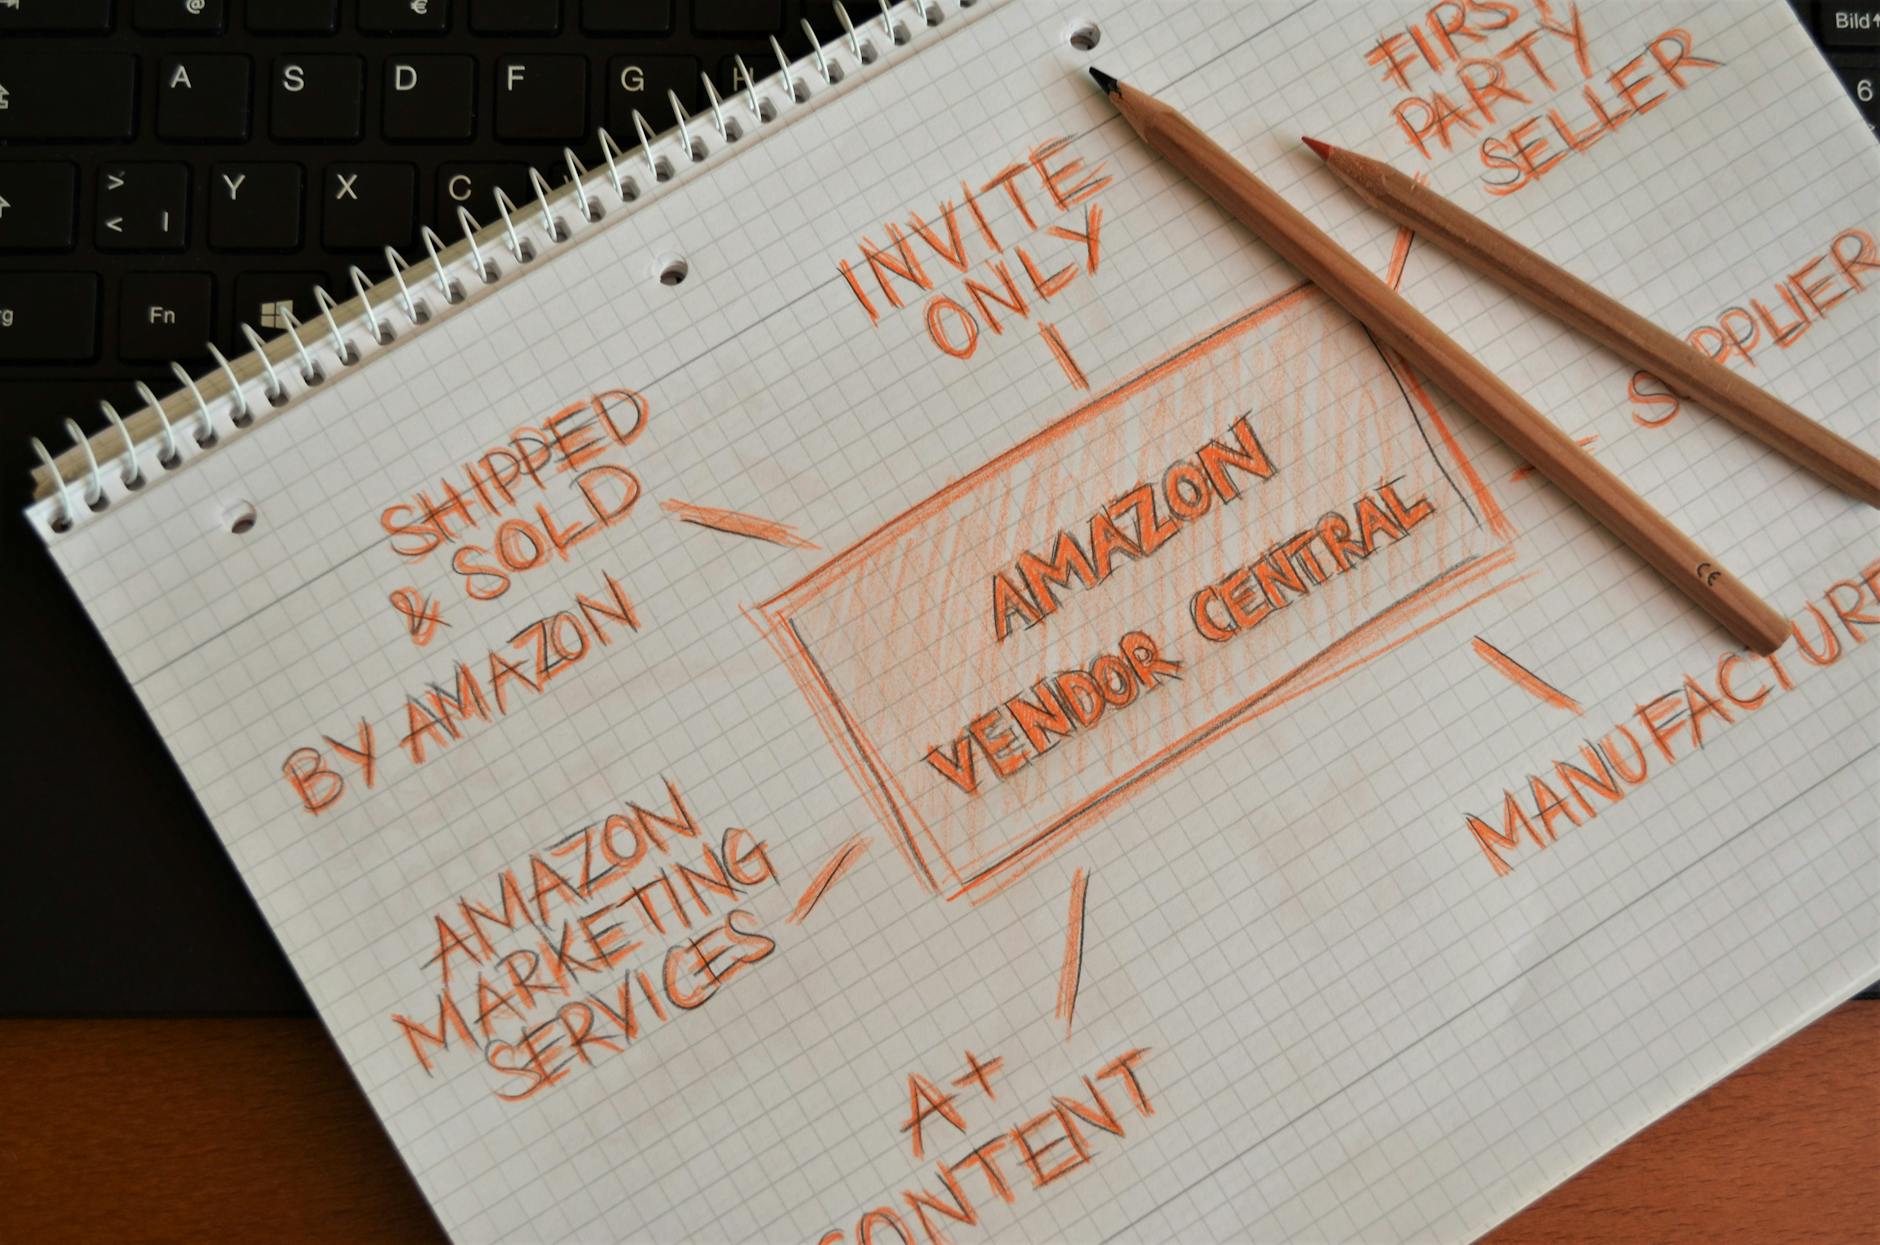 @
€
A S D F G H
>
< |
Y X C
Fn
Bild
6
INVITE
ONLY
FIRST
PARTY
SELLER
SUPPLIER
SHIPPED
& SOLD
BY AMAZON
AMAZON
VENDOR CENTRAL
MANUFACTURE
AMAZON
MARKETING
SERVICES
A+
CONTENT